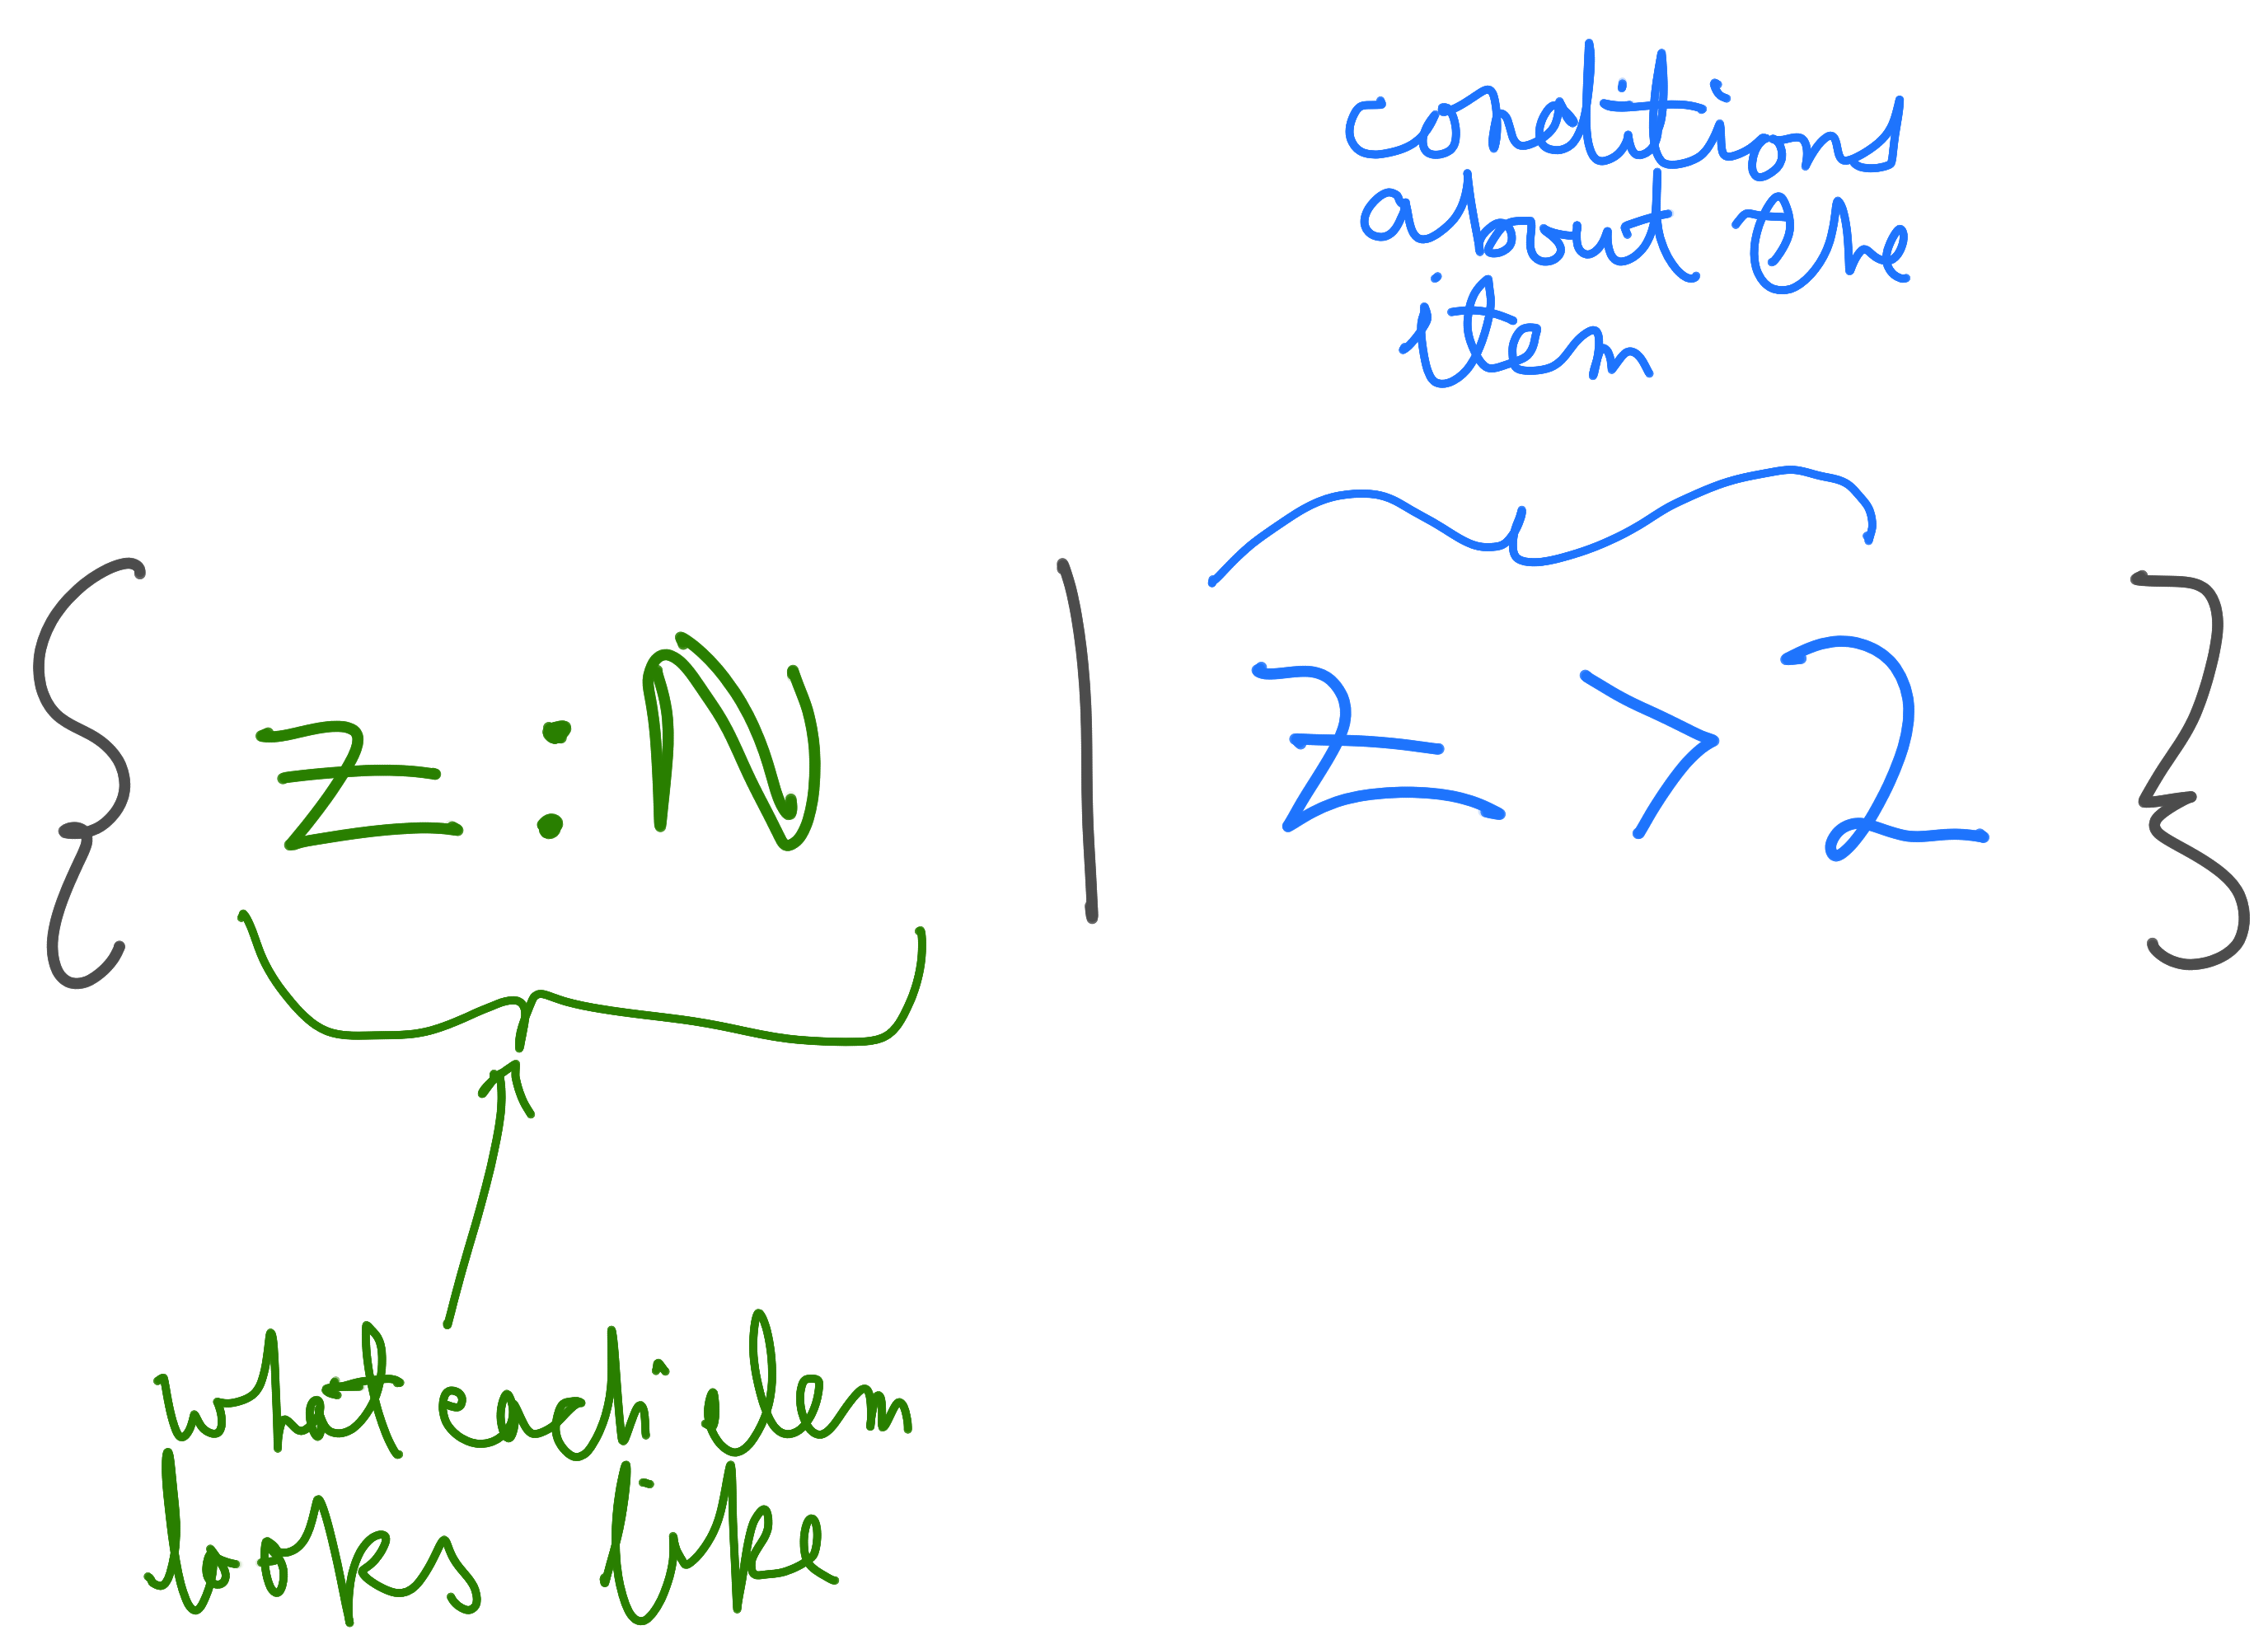 conditions
about the
item
{ z : ℕ | z > 2 }
what each elem
looks like